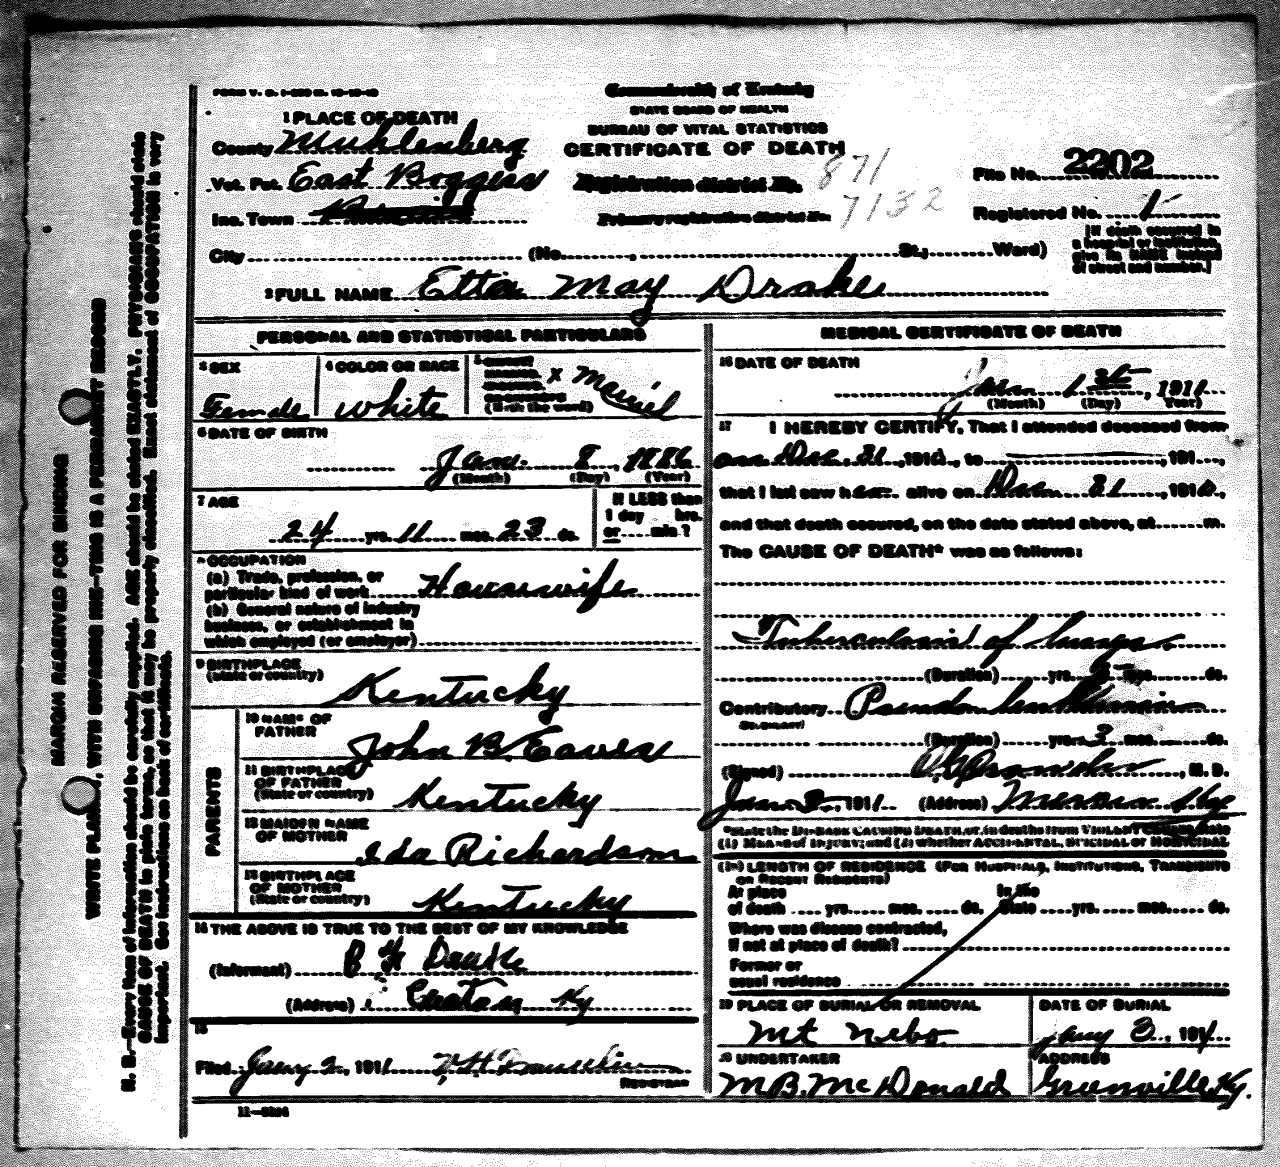 FORM V. S.
Commonwealth of Kentucky
STATE BOARD OF HEALTH
BUREAU OF VITAL STATISTICS
CERTIFICATE OF DEATH
1 PLACE OF DEATH
County Muhlenberg
Vot. Pct. East Boggess
Inc. Town
City (No. , St., Ward)
Registration district No. 871
Primary registration district No. 7132
File No. 2202
Registered No. 1
[If death occurred in
a hospital or institution,
give its NAME instead
of street and number.]
2 FULL NAME Etta May Drake
PERSONAL AND STATISTICAL PARTICULARS
3 SEX
Female
4 COLOR OR RACE
White
5
(Write the word)
x Married
6 DATE OF BIRTH
Jan. 8, 1886
(Month) (Day) (Year)
7 AGE
24 yrs. 11 mos. 23 ds.
If LESS than
1 day hrs.
or min ?
8 OCCUPATION
(a) Trade, profession, or
particular kind of work Housewife
(b) General nature of industry
business, or establishment in
which employed (or employer)
9 BIRTHPLACE
(State or country)
Kentucky
PARENTS
10 NAME OF
FATHER
John B. Eaves
11 BIRTHPLACE
OF FATHER
(State or country)
Kentucky
12 MAIDEN NAME
OF MOTHER
Ida Richardson
13 BIRTHPLACE
OF MOTHER
(State or country)
Kentucky
14 THE ABOVE IS TRUE TO THE BEST OF MY KNOWLEDGE
(Informant) Drake
(Address) Ky
15
Filed Jany 2, 1911
REGISTRAR
11-3184
MEDICAL CERTIFICATE OF DEATH
16 DATE OF DEATH
Jan 1st, 1911
(Month) (Day) Year)
17 I HEREBY CERTIFY, That I attended deceased from
on Dec. 31, 1910, to , 191 ,
that I last saw her alive on Dec 31, 1910,
and that death occured, on the date stated above, at m.
The CAUSE OF DEATH* was as follows:
Tuberculosis of lungs.
(Duration) yrs. mos. ds.
Contributory
(Duration) yrs. 3 mos. ds.
(Signed) , M. D.
Jan 2, 1911 (Address) Ky
*State the DISEASE CAUSING DEATH, or, in deaths from VIOLENT CAUSES, state
(1) MEANS of INJURY; and (2) whether ACCIDENTAL, SUICIDAL or HOMICIDAL
LENGTH OF RESIDENCE (FOR HOSPITALS, INSTITUTIONS, TRANSIENTS
OR RECENT RESIDENTS)
At place In the
of death yrs. mos. ds. State yrs. mos. ds.
Where was disease contracted,
If not at place of death?
Former or
usual residence
19 PLACE OF BURIAL OR REMOVAL
Mt Nebo
DATE OF BURIAL
Jany 3, 1911
20 UNDERTAKER
M B. McDonald
ADDRESS
Greenville Ky.
MARGIN RESERVED FOR BINDING
WRITE PLAINLY, WITH UNFADING INK—THIS IS A PERMANENT RECORD
N. B.—Every item of information should be carefully supplied. AGE should be stated EXACTLY. PHYSICIANS should state
CAUSE OF DEATH in plain terms, so that it may be properly classified. Exact statement of OCCUPATION is very
important. See instructions on back of certificate.